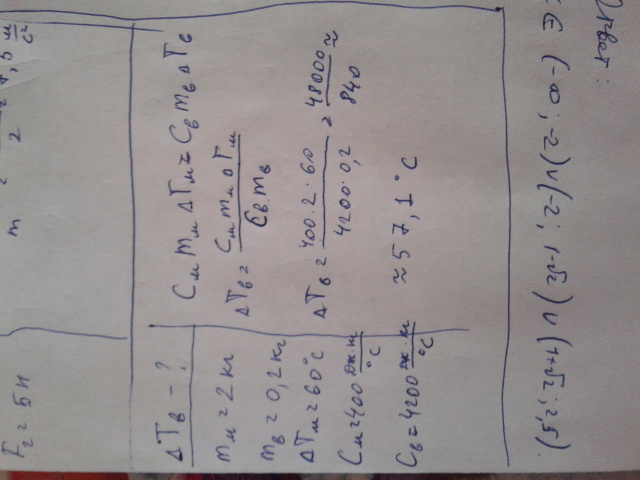 F₂ = 5н
m = 2 = 7,5 м/с²
ΔTв - ?
mм = 2 кг
mв = 0,2 кг
ΔTм = 60°C
Cм = 400 Дж·кг/°C
Cв = 4200 Дж·кг/°C
Cм mм ΔTм = Cв mв ΔTв
ΔTв = Cм mм ΔTм / Cв mв
ΔTв = 400·2·60 / 4200·0,2 = 48000 / 840 ≈
≈ 57,1°C
Ответ:
∈ (-∞; -2) ∪ (-2; 1-√2) ∪ (1+√2; 2,5).